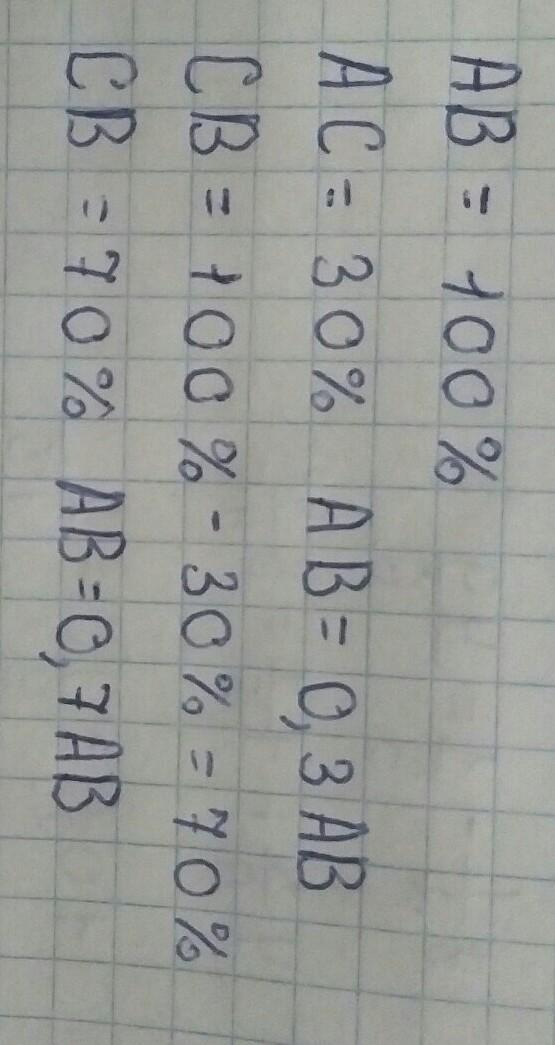 AB = 100%
AC = 30% AB = 0,3 AB
CB = 100% - 30% = 70%
CB = 70% AB = 0,7 AB